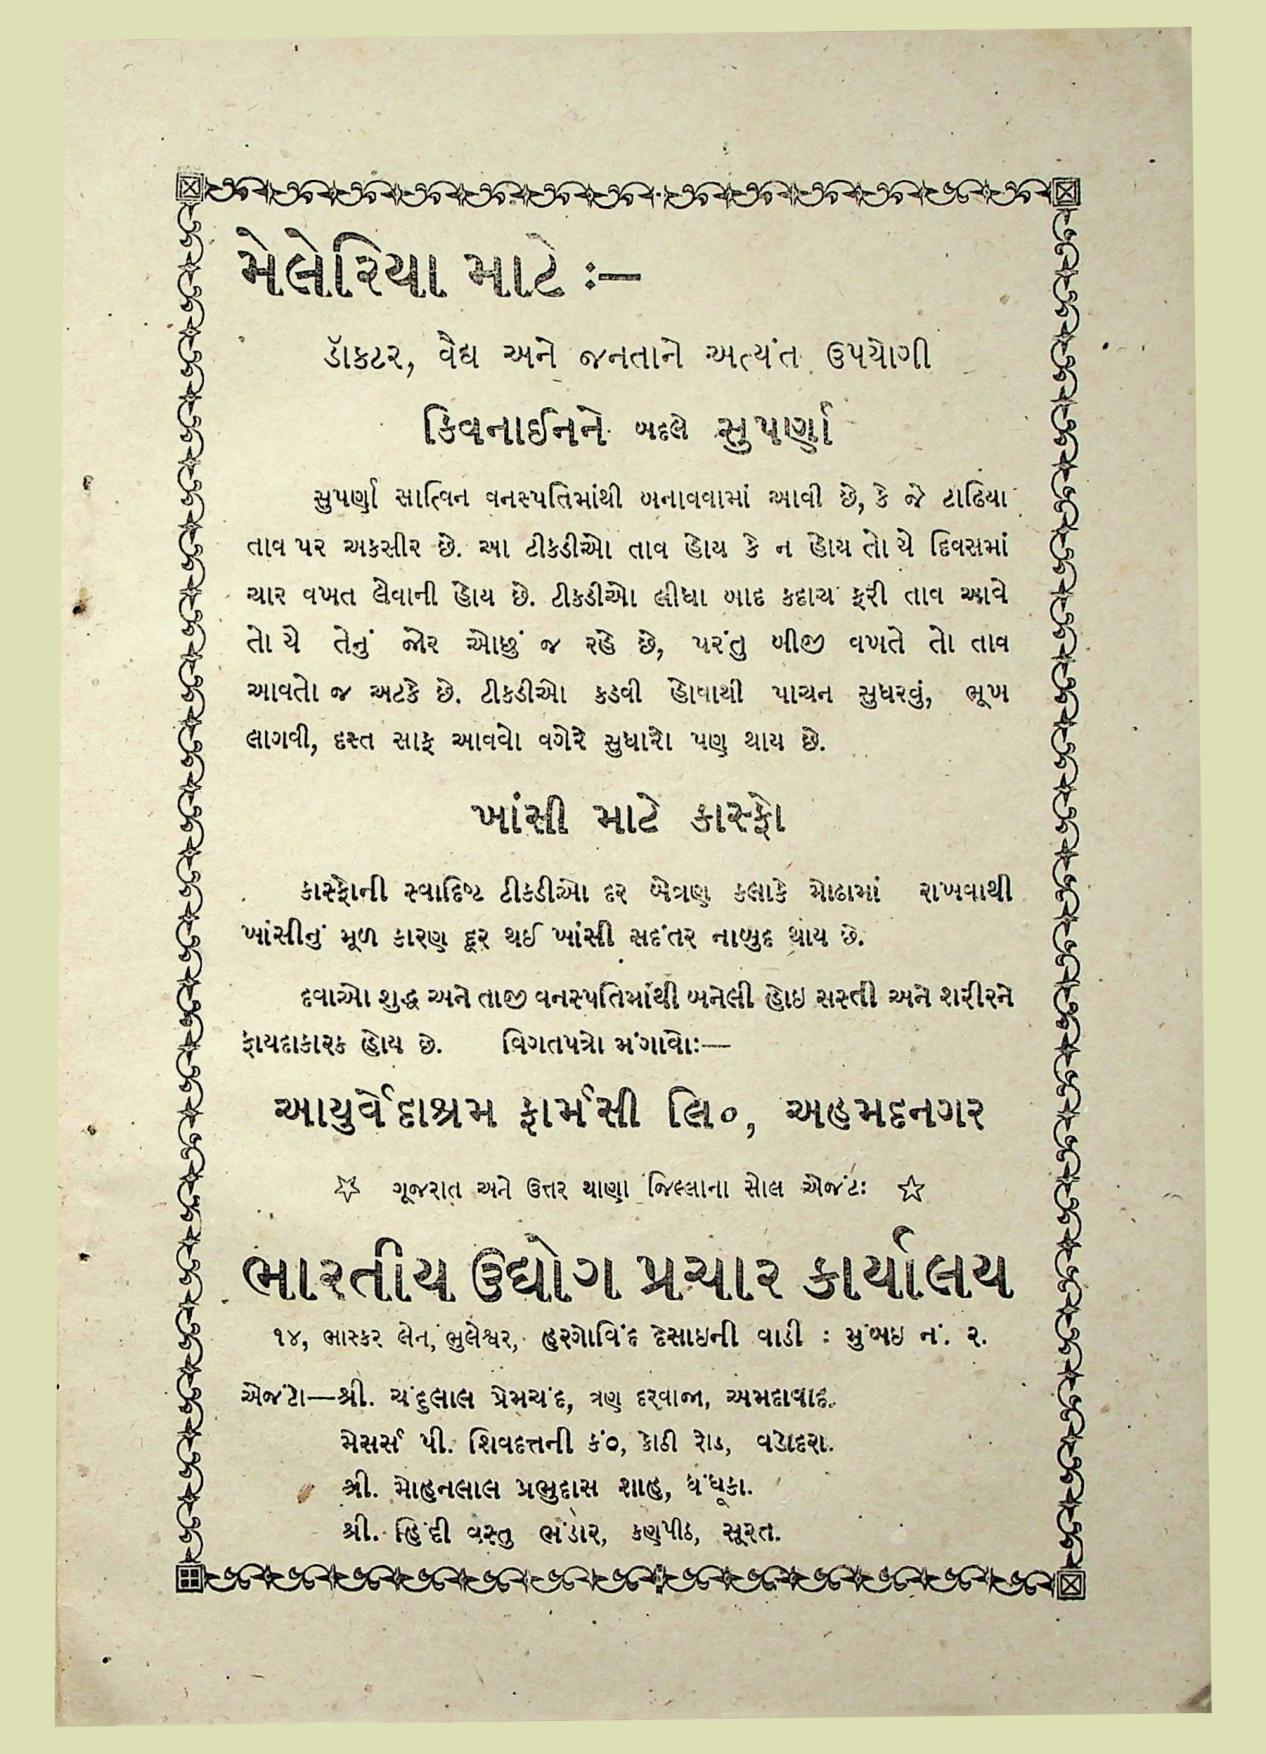 મેલેરિયા માટે :—
ડૉકટર, વૈદ્ય અને જનતાને અત્યંત ઉપયોગી
ક્વિનાઈનને બદલે સુપર્ણા
સુપર્ણા સાત્વિન વનસ્પતિમાંથી બનાવવામાં આવી છે, કે જે ટાઢિયા
તાવ પર અકસીર છે. આ ટીકડીઓ તાવ હોય કે ન હોય તો યે દિવસમાં
ચાર વખત લેવાની હોય છે. ટીકડીઓ લીધા બાદ કદાચ ફરી તાવ આવે
તો યે તેનું જોર ઓછું જ રહે છે, પરંતુ બીજી વખતે તો તાવ
આવતો જ અટકે છે. ટીકડીઓ કડવી હોવાથી પાચન સુધરવું, ભૂખ
લાગવી, દસ્ત સાફ આવવો વગેરે સુધારો પણ થાય છે.
ખાંસી માટે કાસ્ફો
કાસ્ફોની સ્વાદિષ્ટ ટીકડીઓ દર બેત્રણ કલાકે મોઢામાં રાખવાથી
ખાંસીનું મૂળ કારણ દૂર થઈ ખાંસી સદંતર નાબુદ થાય છે.
દવાઓ શુદ્ધ અને તાજી વનસ્પતિમાંથી બનેલી હોઇ સસ્તી અને શરીરને
ફાયદાકારક હોય છે. વિગતપત્રો મંગાવો:—
આયુર્વેદાશ્રમ ફાર્મસી લિ૦, અહમદનગર
☆ ગૂજરાત અને ઉત્તર થાણા જિલ્લાના સોલ એજંટ: ☆
ભારતીય ઉદ્યોગ પ્રચાર કાર્યાલય
૧૪, ભાસ્કર લેન, ભુલેશ્વર, હરગોવિંદ દેસાઇની વાડી : મુંબઇ નં. ૨.
એજંટો—શ્રી. ચંદુલાલ પ્રેમચંદ, ત્રણ દરવાજા, અમદાવાદ.
મેસર્સ પી. શિવદત્તની કં૦, કોઠી રોડ, વડોદરા.
શ્રી. મોહનલાલ પ્રભુદાસ શાહ, ધંધૂકા.
શ્રી. હિંદી વસ્તુ ભંડાર, કણપીઠ, સૂરત.